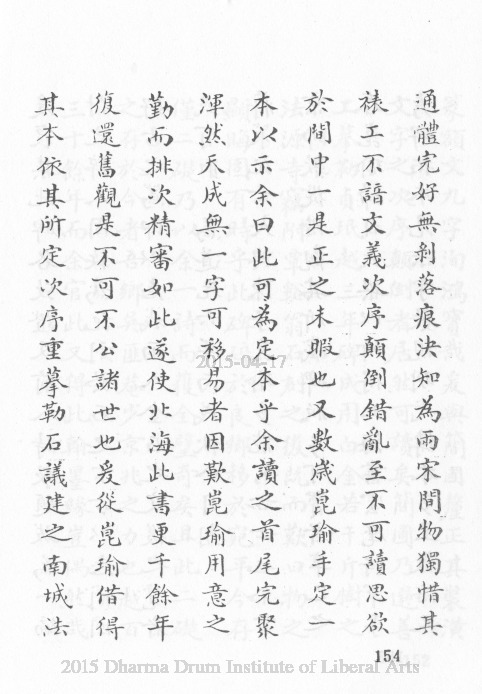 通體完好無剝落痕決知為兩宋間物獨惜其
裱工不諳文義次序顛倒錯亂至不可讀思欲
於閒中一是正之未暇也又數歲崑瑜寫定一
本以示余曰此可為定本乎余讀之首尾完聚
渾然天成無一字可移易者因歎崑瑜用意之
勤而排次精審如此遂使北海此書更千餘年
復還舊觀是不可不公諸世也爰從崑瑜借得
其本依其所定次序重摹勒石議建之南城法
2015-04-17
154
2015 Dharma Drum Institute of Liberal Arts